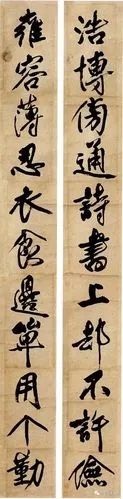 浩博傍通詩書上
不許儉
雍容薄忍衣食邊
用个勤